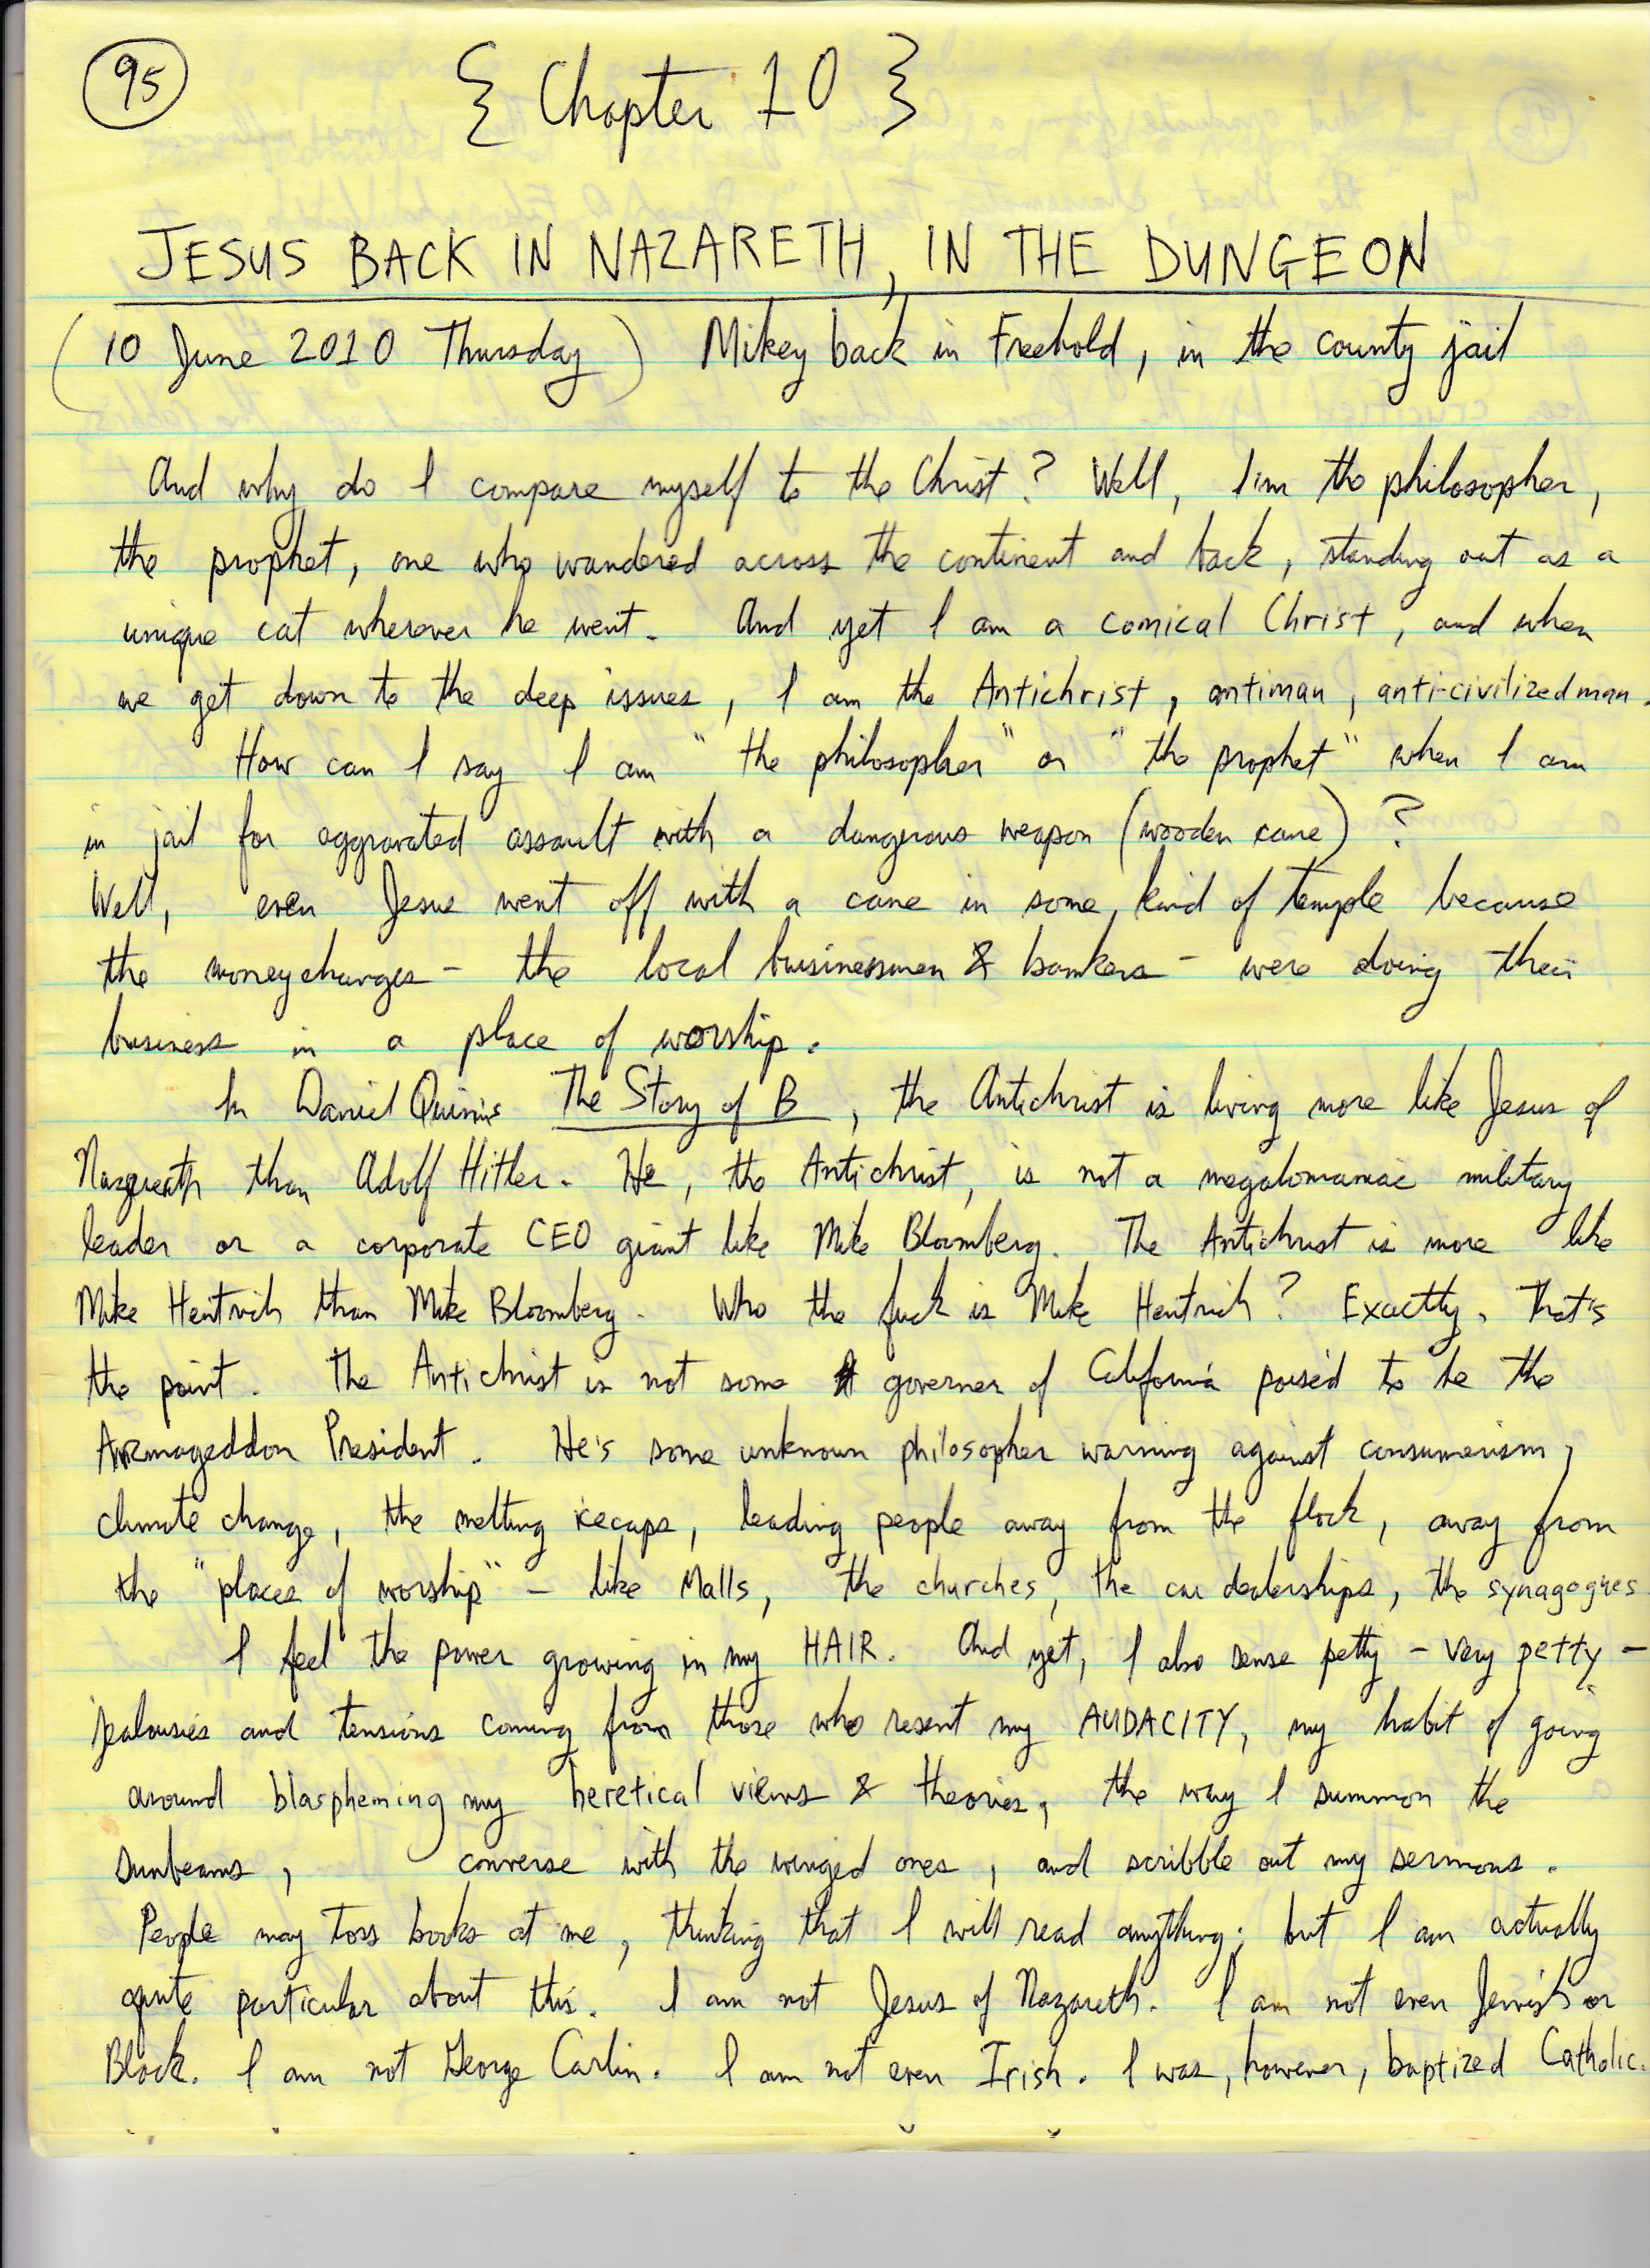 95
{ Chapter 10 }
JESUS BACK IN NAZARETH, IN THE DUNGEON
(10 June 2010 Thursday) Mikey back in Freehold, in the county jail
And why do I compare myself to the Christ? Well, I'm the philosopher,
the prophet, one who wandered across the continent and back, standing out as a
unique cat wherever he went. And yet I am a comical Christ, and when
we get down to the deep issues, I am the Antichrist, antiman, anti-civilized man.
How can I say I am "the philosopher" or "the prophet" when I am
in jail for aggravated assault with a dangerous weapon (wooden cane)?
Well, even Jesus went off with a cane in some kind of temple because
the moneychanges - the local businessmen & bankers - were doing their
business in a place of worship.
In Daniel Quinn's The Story of B, the Antichrist is living more like Jesus of
Nazareth than Adolf Hitler. He, the Antichrist, is not a megalomaniac military
leader or a corporate CEO giant like Mike Bloomberg. The Antichrist is more like
Mike Hentrich than Mike Bloomberg. Who the fuck is Mike Hentrich? Exactly. That's
the point. The Antichrist is not some governer of California poised to be the
Armageddon President. He's some unknown philosopher warning against consumerism,
climate change, the melting icecaps, leading people away from the flock, away from
the "places of worship" - like Malls, the churches, the car dealerships, the synagogues
I feel the power growing in my HAIR. And yet, I also sense petty - very petty -
jealousies and tensions coming from those who resent my AUDACITY, my habit of going
around blaspheming my heretical views & theories, the way I summon the
sunbeams, converse with the winged ones, and scribble out my sermons.
People may toss books at me, thinking that I will read anything; but I am actually
quite particular about this. I am not Jesus of Nazareth. I am not even Jewish or
Black. I am not George Carlin. I am not even Irish. I was, however, baptized Catholic.